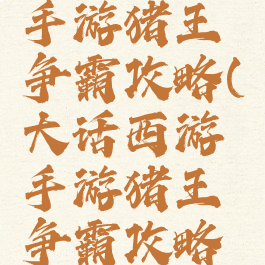 手游猪王
争霸攻略(
大话西游
手游猪王
争霸攻略